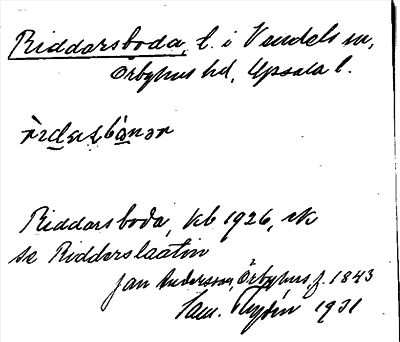 Riddarsboda, b. i Vendels sn,
Örbyhus hd, Upsala l.
Riddarsboda, kb 1926, ek
se Ridderslaatin
Jan Andersson, Örbyhus, f. 1843
Sam. 1931